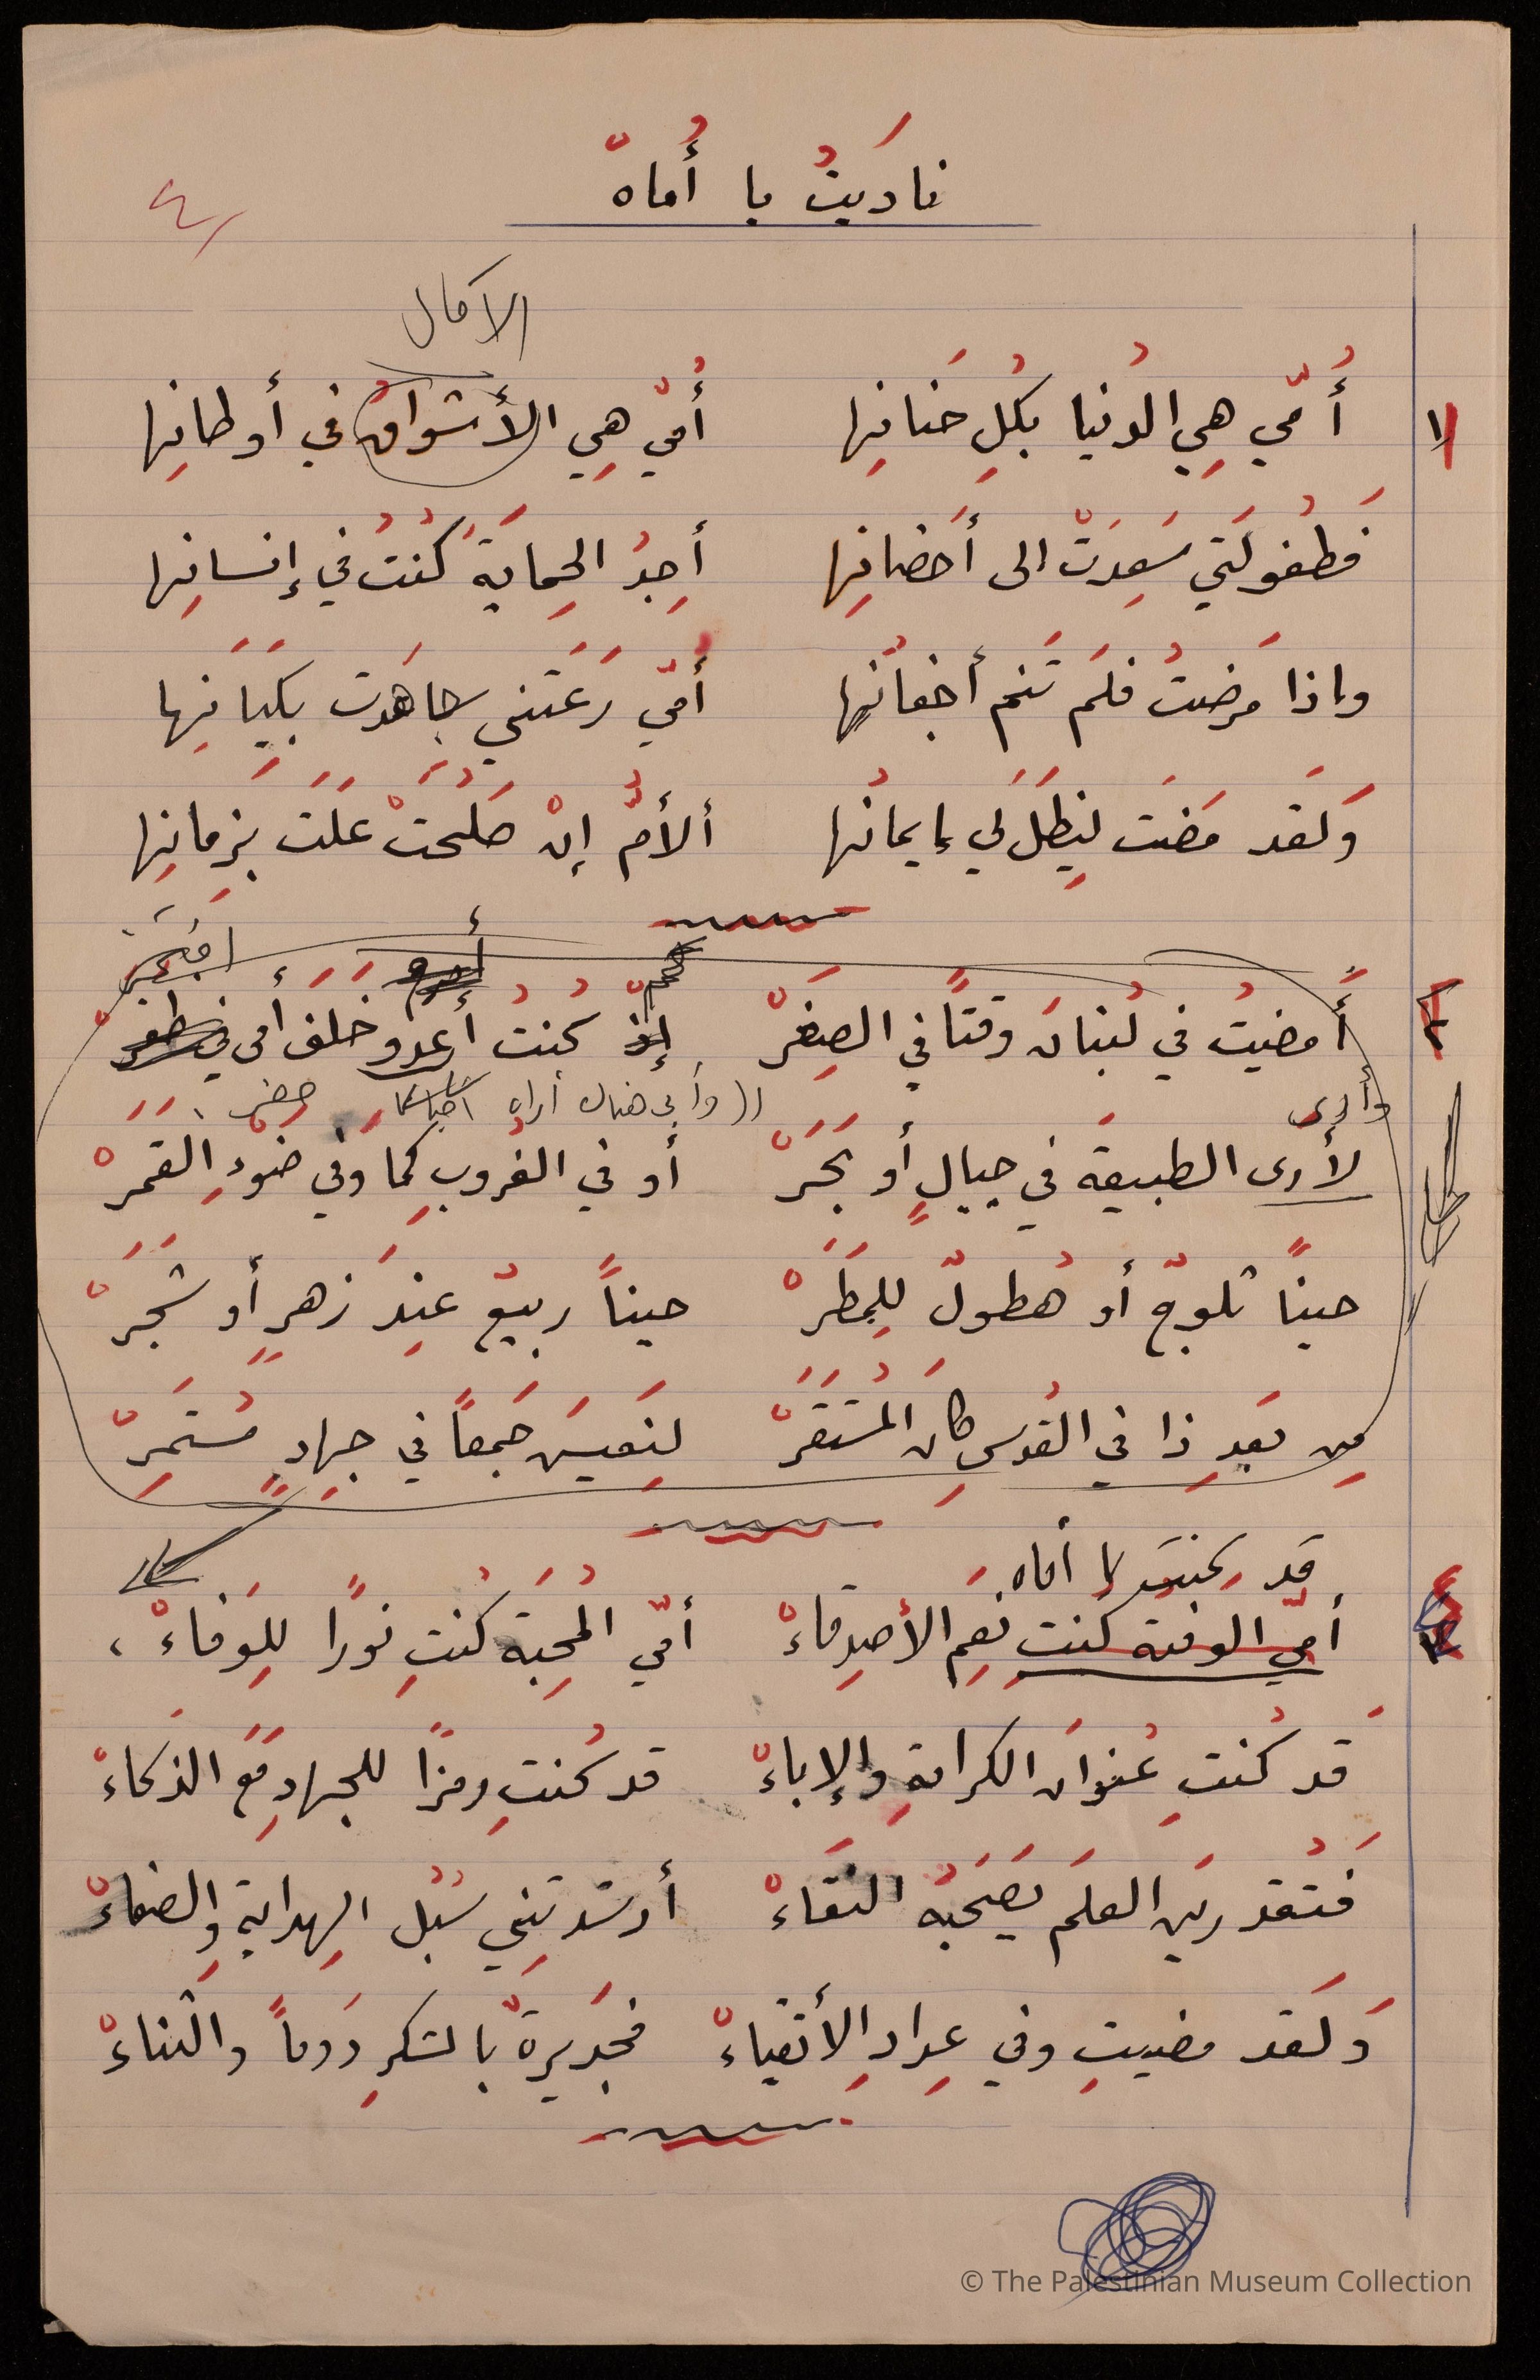 نادَيتُ يا أُماهْ
٤
الآمال
١ أُمّي هِي الدُنيا بكُلِ حَنانِها أُمّي هِي الأشواقُ في أوطانِها
فَطُفولَتي سَعِدَتْ الى أَحضانِها أجِدُ الحِمايَةَ كُنتُ في إنسانِها
واذا مَرِضتُ فلَم تَنم أجفانُها أمّي رَعَتني جاهَدت بكَيَانِها
وَلَقد مَضَت لِيَظَلَ لي إيمانُها ألأمُّ إنْ صَلُحَتْ عَلَت بِزمانِها
أفتَخِرْ
٢ أمضيتُ في لُبنانَ وقتاً في الصِغَرْ كم كُنتُ أعدو خَلفَ أمي
وأرى ((وأبي هناك أراه أحيانا حضر
لأرى الطبيعَة في جبالٍ أو بَحَرْ أو في الغُروبِ كَما وَفي ضَوْءِ القَمَرْ
حيناً ثلوجٌ أو هُطولٌ لِلمَطَرْ حيناً ربيعٌ عِندَ زهرٍ أو شَجَرْ
مِن بَعدِ ذا في القُدسِ كانَ المُستَقَرْ لِنَعيشَ جَمعاً في جِهادٍ مُستَمِرْ
قد كنت يا أماه
٣ أمّي الوفية كُنتِ نِعمَ الأصدِقاءْ أمّي المُحِبَة كُنتِ نورًا لِلوَفاءْ،
قَد كُنتِ عُنوانَ الكرامَةِ وَالإباءْ قد كُنتِ رمزًا للجهادِ مَعَ الذَكاءْ
فَتُقدرينَ العلمَ يَصحَبُه النَقاءْ أرشَدتِني سُبُل الهِدايةِ وَالصفاءْ
وَلَقد مضيتِ وفي عِدادِ الأتقياءْ فَجَديرةٌ بالشكرِ دَوماً والثناءْ
© The Palestinian Museum Collection